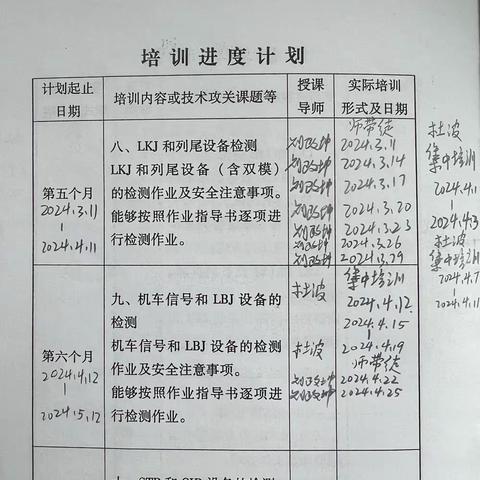 培训进度计划
计划起止
日期
培训内容或技术攻关课题等
授课
导师
实际培训
形式及日期
第五个月
2024.3.11
2024.4.11
八、LKJ 和列尾设备检测
LKJ 和列尾设备（含双模）
的检测作业及安全注意事项。
能够按照作业指导书逐项进
行检测作业。
师带徒
2024.3.11
2024.3.14
2024.3.17
2024.3.20
2024.3.23
2024.3.26
2024.3.29
杜波
集中培训
2024.4.1
2024.4.3
杜波
集中培训
2024.4.7
2024.4.11
第六个月
2024.4.12
2024.5.12
九、机车信号和 LBJ 设备的
检测
机车信号和 LBJ 设备的检测
作业及安全注意事项。
能够按照作业指导书逐项进
行检测作业。
杜波
杜波
集中培训
2024.4.12
2024.4.15
2024.4.19
师带徒
2024.4.22
2024.4.25